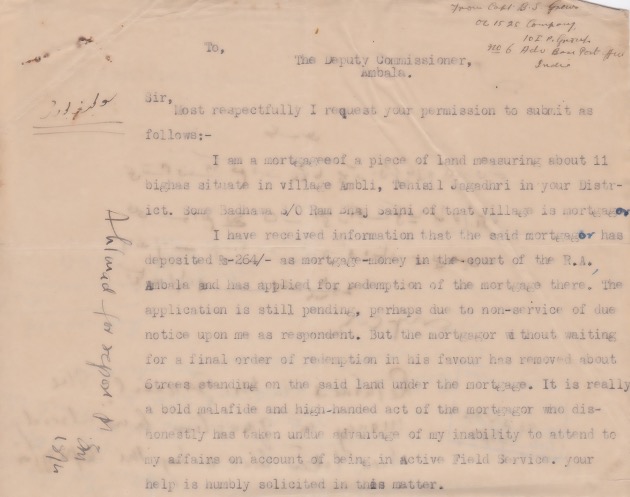 From Capt B. S. Grewal
No 6 Adv Base Post
India
To,
The Deputy Commissioner,
Ambala.
Sir,
Most respectfully I request your permission to submit as
follows:-
I am a mortgageeof a piece of land measuring about 11
bighas situate in village Ambli, Tehisil Jagadhri in your Distr-
ict. Some Radhawa S/O Ram Bhaj Saini of that village is mortgagor
I have received information that the said mortgagor has
deposited Rs-264/- as mortgage-money in the court of the R.A.
Ambala and has applied for redemption of the mortgage there. The
application is still pending, perhaps due to non-service of due
notice upon me as respondent. But the mortgagor without waiting
for a final order of redemption in his favour has removed about
6trees standing on the said land under the mortgage. It is really
a bold malafide and high-handed act of the mortgagor who dis-
honestly has taken undue advantage of my inability to attend to
my affairs on account of being in active Field Service. your
help is humbly solicited in this matter.
Ahlmad for report pl